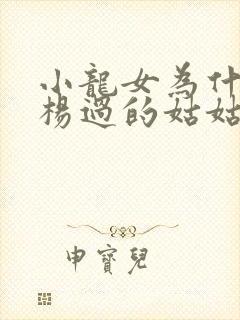 小龍女為什
楊過的姑姑
申寶兒